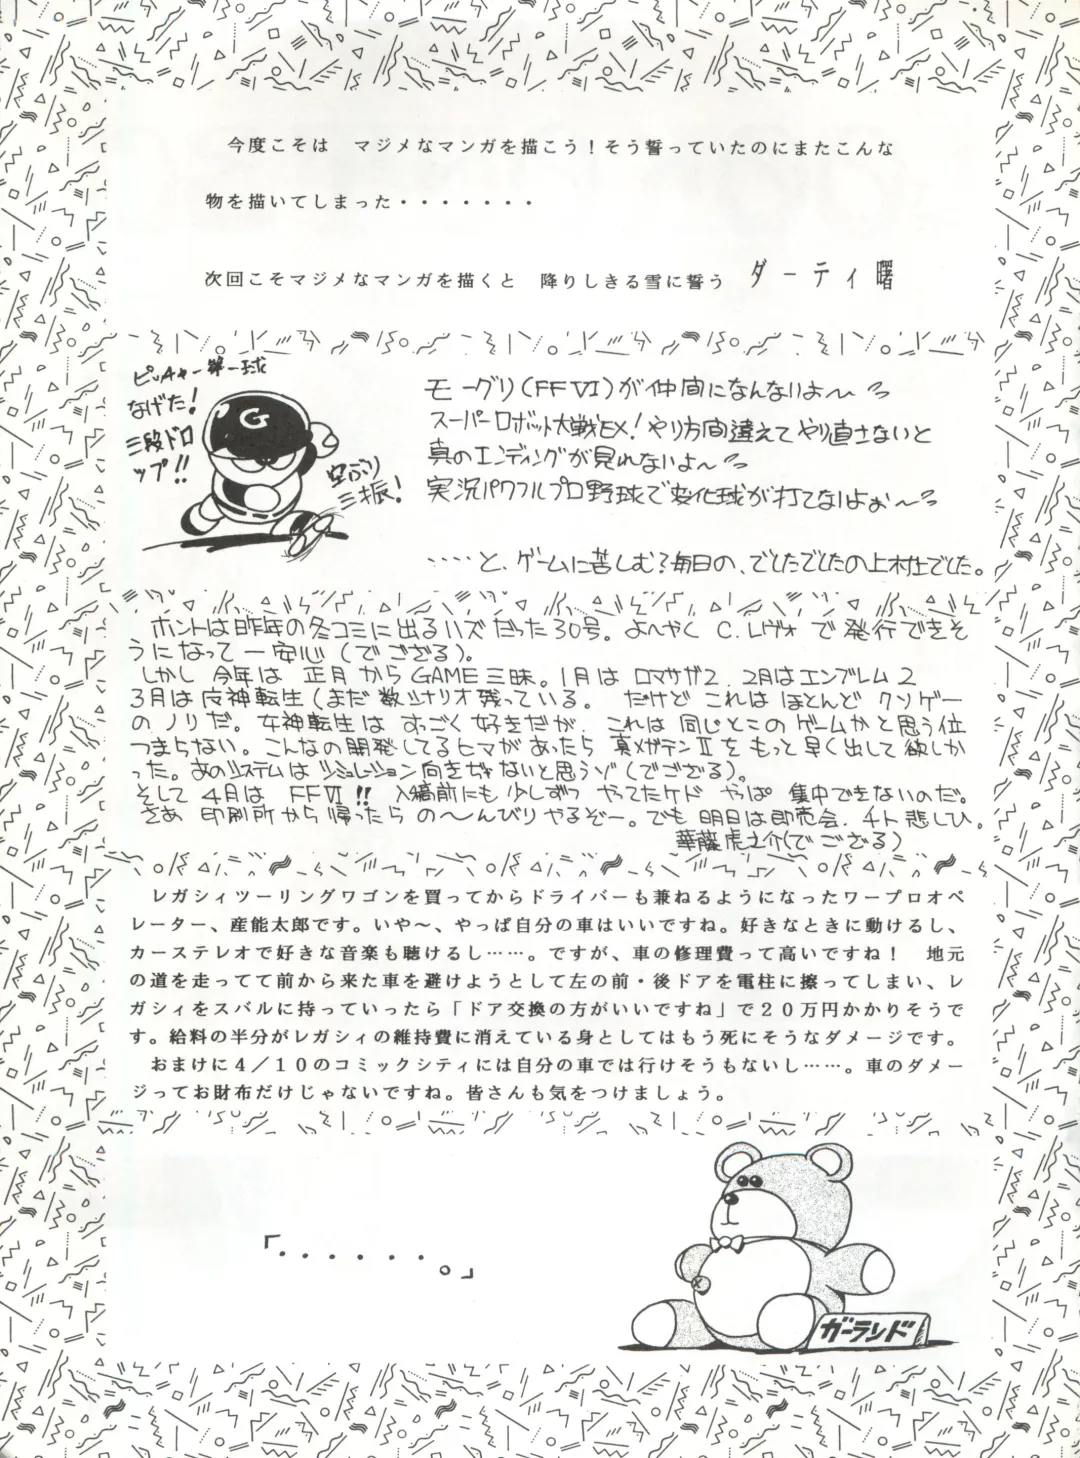 今度こそは　マジメなマンガを描こう！そう誓っていたのにまたこんな
物を描いてしまった・・・・・・・
次回こそマジメなマンガを描くと　降りしきる雪に誓う　ダーティ曙
ピッチャー第一球
なげた！
三段ドロ
ップ！！
G
空ぶり
三振！
モーグリ(FFVI)が仲間になんないよ〜
スーパーロボット大戦EX！やり方間違えてやり直さないと
真のエンディングが見れないよ〜
実況パワフルプロ野球で変化球が打てないよぉ〜
‥‥と、ゲームに苦しむ？毎日の、でしたでしたの上村上でした。
ホントは昨年の冬コミに出るハズだった30号。よ〜やく C.レヴォ で発行できそ
うになって一安心（でござる）。
しかし 今年は 正月からGAME三昧。1月は ロマサガ2、2月はエンブレム2
3月は女神転生（まだ数シナリオ残っている。 だけど これは ほとんど クソゲー
のノリだ。女神転生は すっごく好きだが、これは 同じとこのゲームかと思う位
つまらない。こんなの開発してるヒマがあったら 真メガテンⅡを もっと早く出して欲しか
った。あのシステムは シミュレーション向きぢゃないと思うゾ（でござる）。
そして 4月は FFVI!! 入稿前にも少しずつ やってたケド やっぱ 集中できないのだ。
さあ 印刷所から帰ったら の〜んびりやるぞー。でも明日は即売会、チト悲しひ。
華藤虎之介(でござる)
　レガシィツーリングワゴンを買ってからドライバーも兼ねるようになったワープロオペ
レーター、産能太郎です。いや〜、やっぱ自分の車はいいですね。好きなときに動けるし、
カーステレオで好きな音楽も聴けるし……。ですが、車の修理費って高いですね！　地元
の道を走ってて前から来た車を避けようとして左の前・後ドアを電柱に擦ってしまい、レ
ガシィをスバルに持っていったら「ドア交換の方がいいですね」で２０万円かかりそうで
す。給料の半分がレガシィの維持費に消えている身としてはもう死にそうなダメージです。
　おまけに４／１０のコミックシティには自分の車では行けそうもないし……。車のダメー
ジってお財布だけじゃないですね。皆さんも気をつけましょう。
「・・・・・・。」
ガーランド